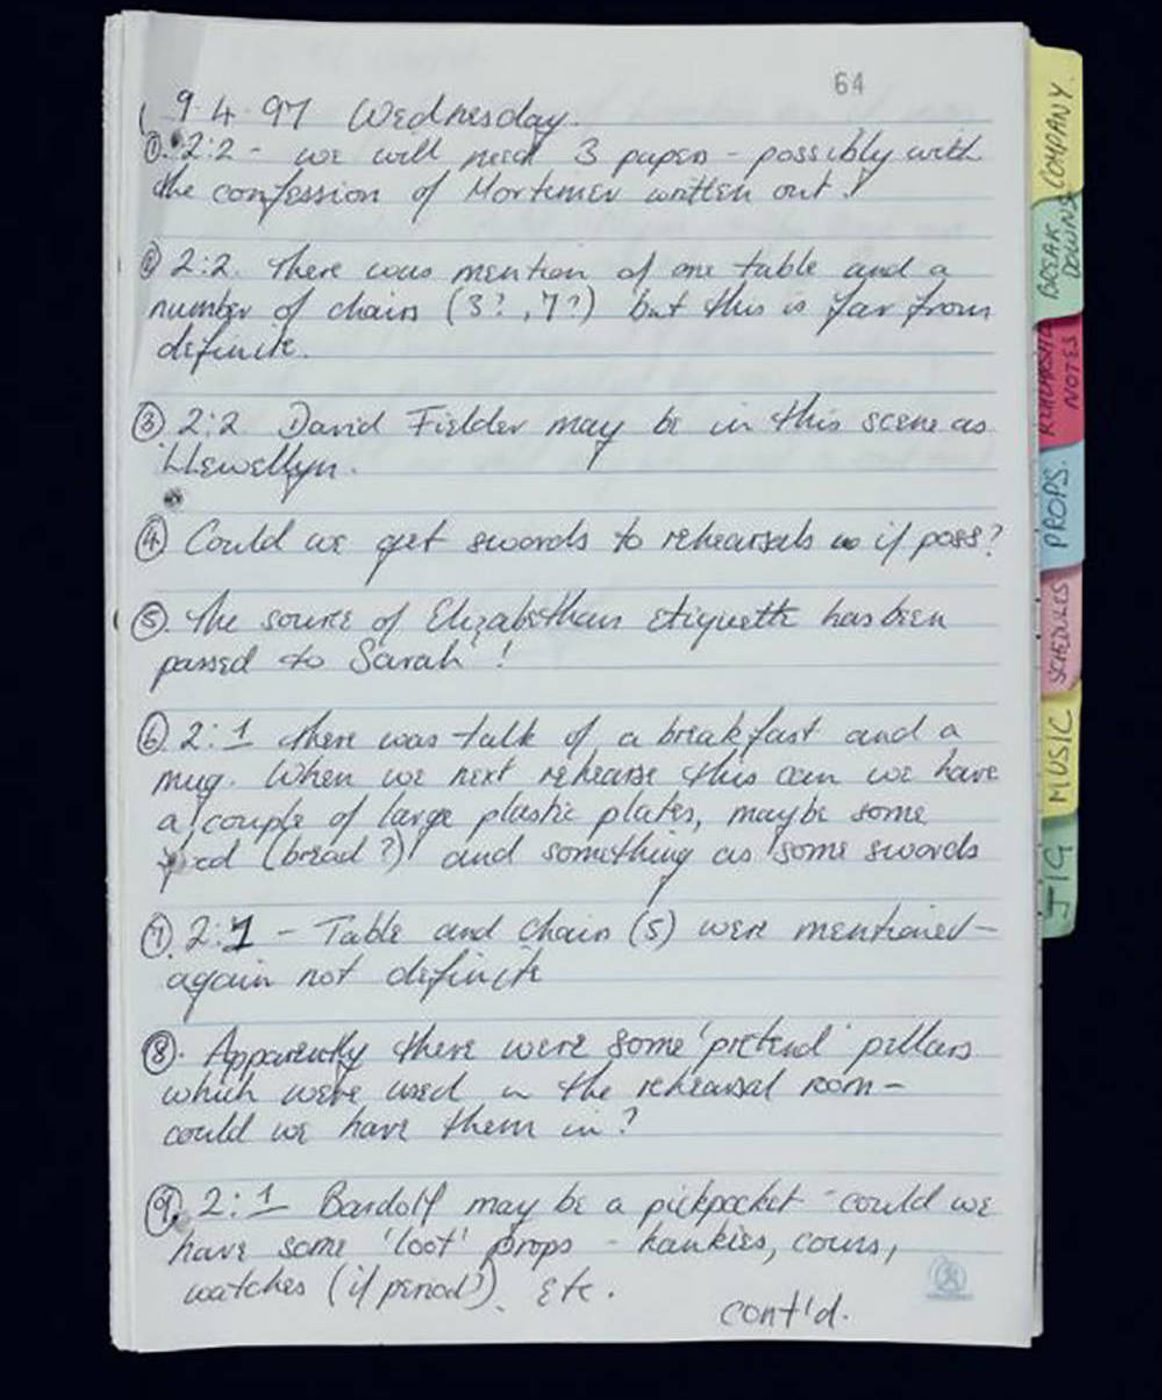 64
9.4.97 Wednesday.
① 2:2 - we will need 3 papers - possibly with
the confession of Mortimer written out.
② 2:2. There was mention of one table and a
number of chairs (3?, 7?) but this is far from
definite.
③ 2:2. David Fielder may be in this scene as
Llewellyn.
④ Could we get swords to rehearsals if poss?
⑤. The source of Elizabethan etiquette has been
passed to Sarah !
⑥. 2:1 there was talk of a breakfast and a
mug. When we next rehearse this can we have
a couple of large plastic plates, maybe some
(bread?) and something as some swords
⑦. 2:1 - Table and chair(s) were mentioned -
again not definite
⑧. Apparently there were some 'pretend' pillars
which were used in the rehearsal room -
could we have them in?
⑨. 2:1 Bardolf may be a pickpocket - could we
have some 'loot' props - hankies, coins,
watches (if period?). Etc.
cont'd.
COMPANY.
BREAK DOWNS
REHEARSAL NOTES
PROPS.
SCHEDULES
MUSIC
JIG